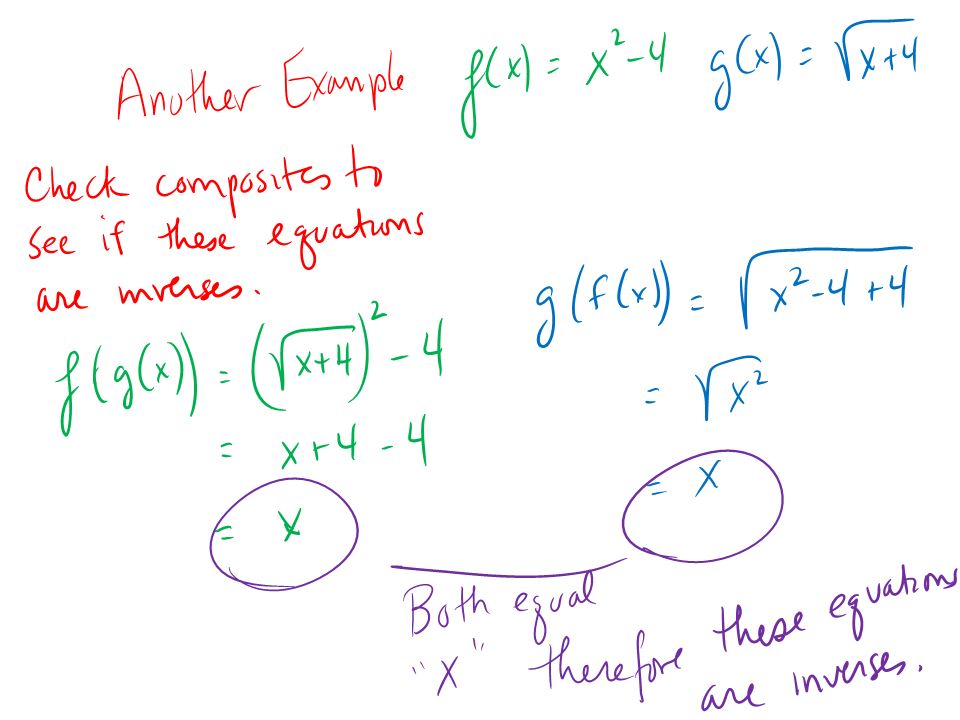 Another Example
f(x) = x²-4
g(x) = √(x+4)
Check composites to
see if these equations
are inverses.
f(g(x)) = (√(x+4))² - 4
= x+4 - 4
= x
g(f(x)) = √(x²-4+4)
= √(x²)
= x
Both equal
"x" therefore these equations
are inverses.